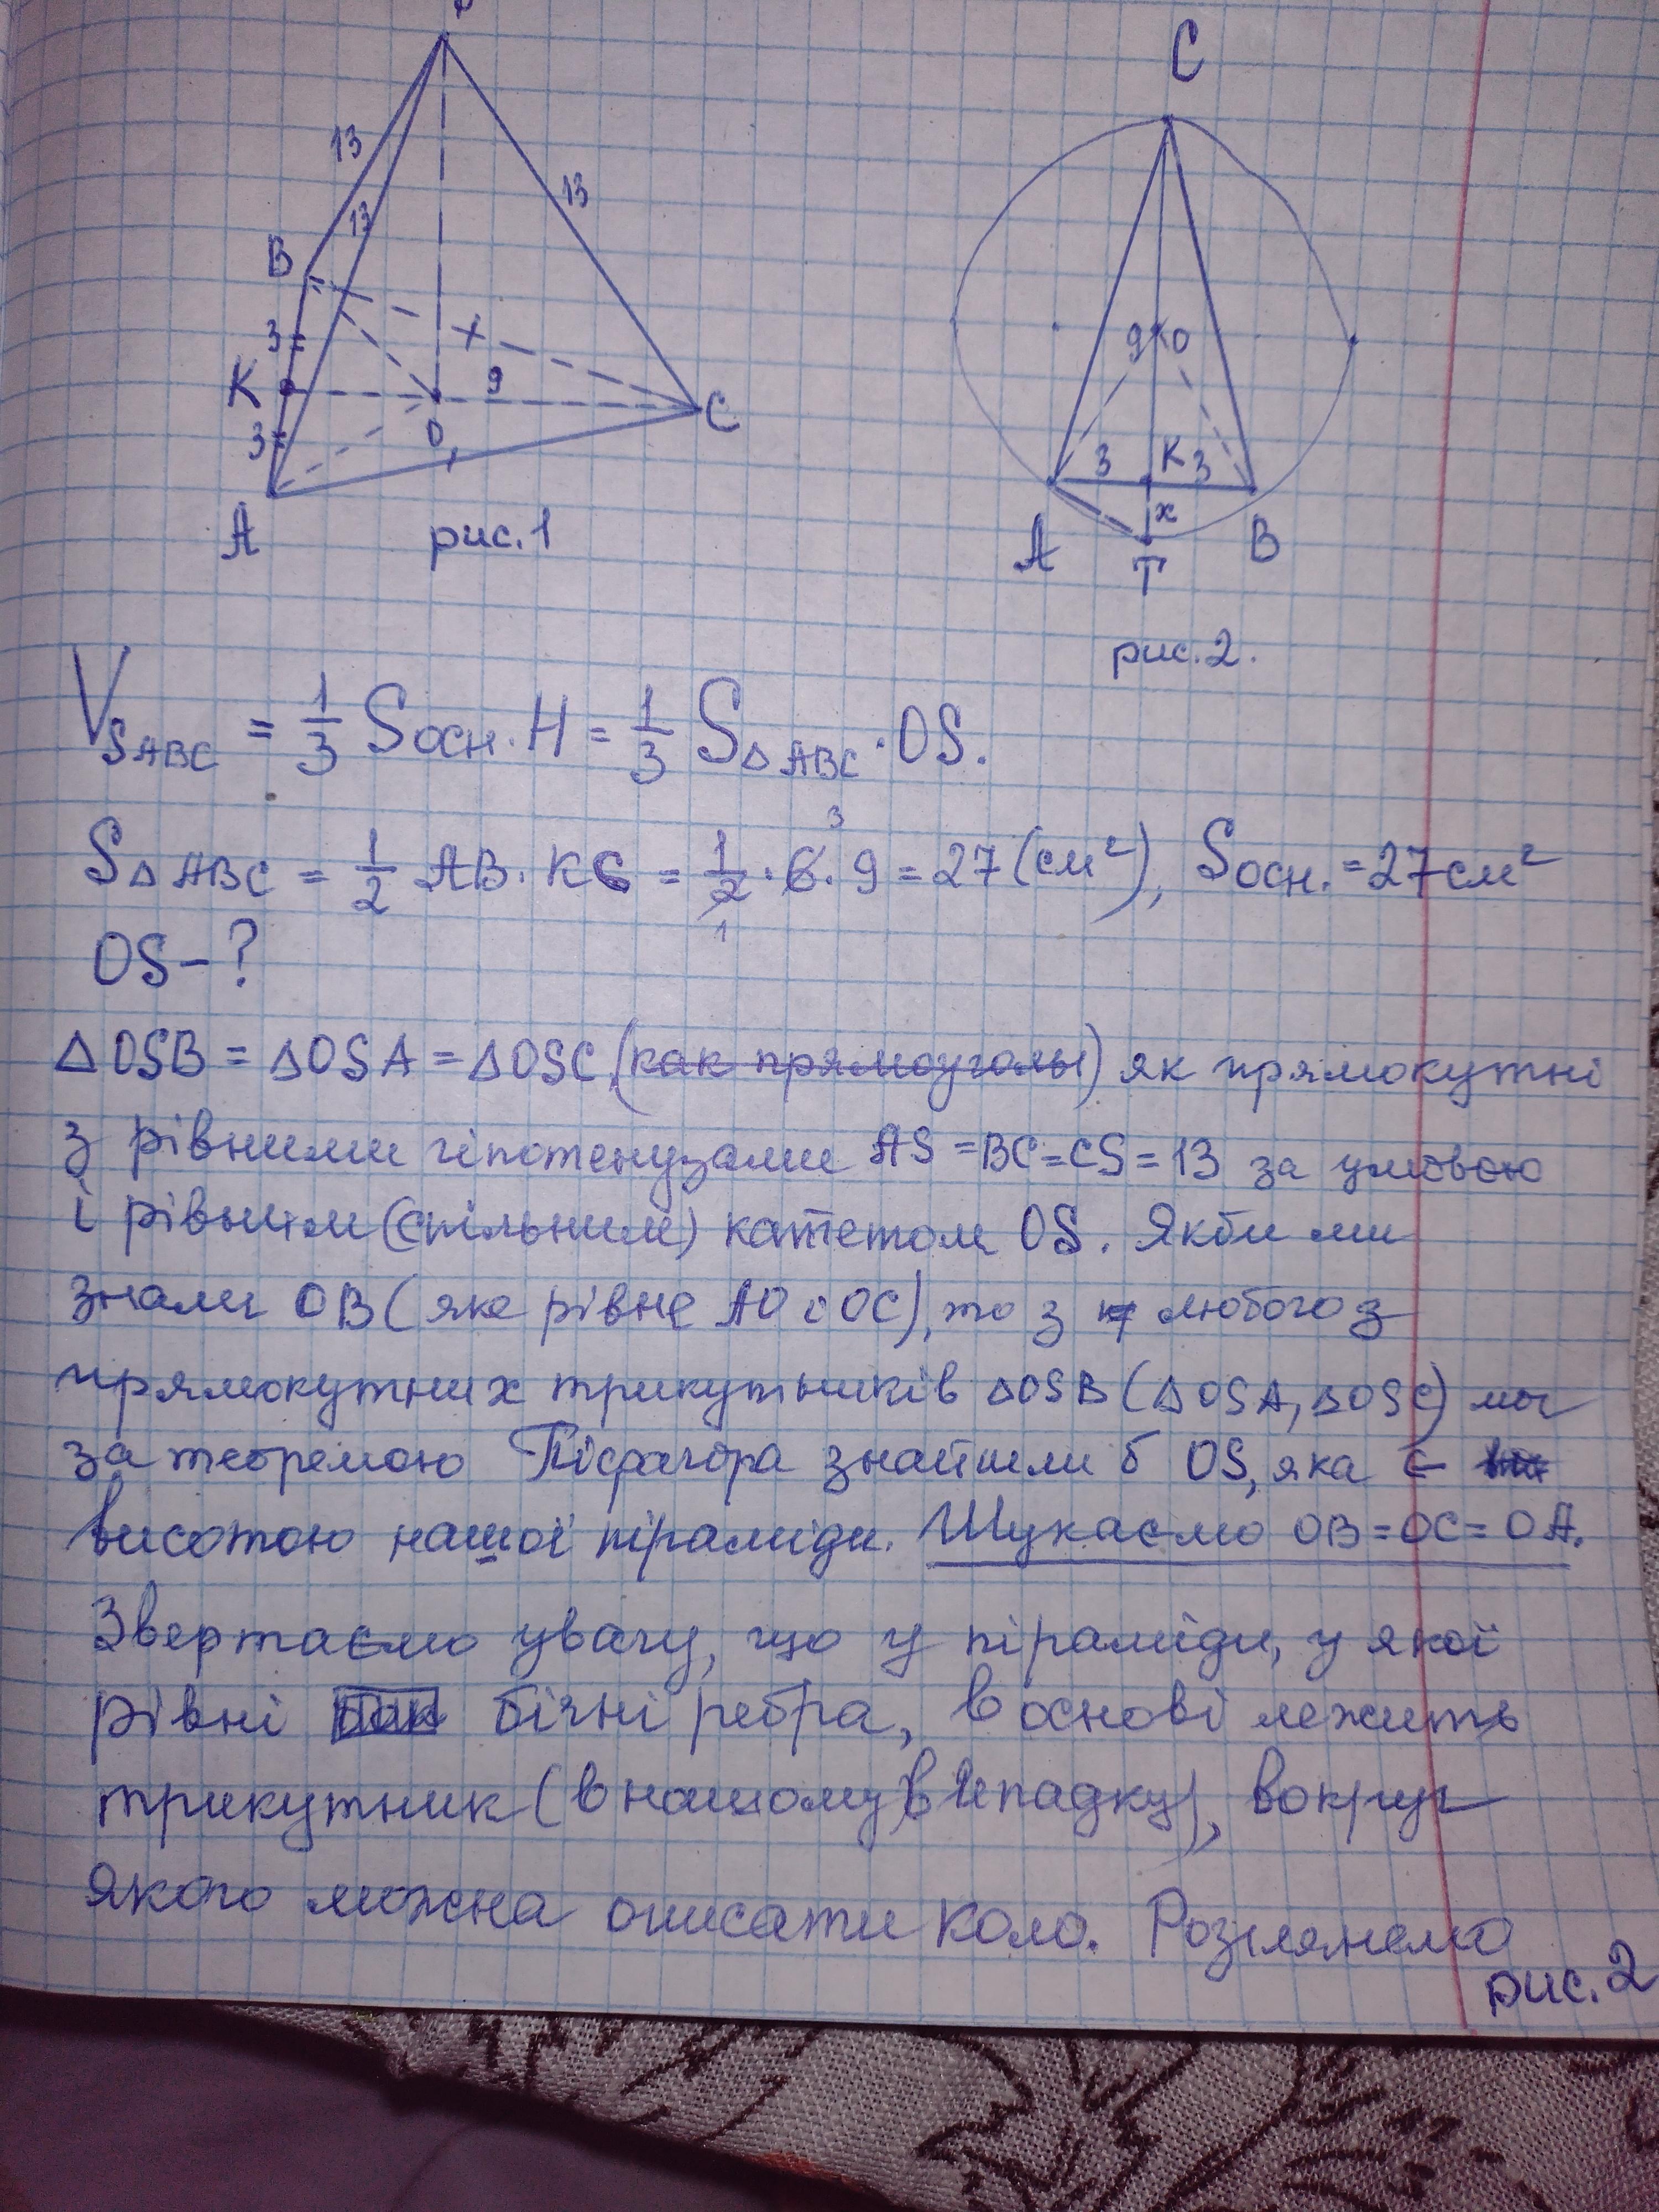 13
13
13
B
3
K
3
A
O
9
C
рис. 1
C
9
O
3
K
3
x
A
T
B
рис. 2.
V SABC = 1/3 Sосн. · H = 1/3 S△ABC · OS.
S△ABC = 1/2 AB · KC = 1/2 · 6 · 9 = 27 (см²), Sосн. = 27 см²
3
1
OS – ?
△OSB = △OSA = △OSC, (как прямоуголы) як прямокутні
з рівними гіпотенузами AS = BC = CS = 13 за умовою
і рівним (спільним) катетом OS. Якби ми
знали OB (яке рівне AO і OC), то з любого з
прямокутних трикутників △OSB (△OSA, △OSC) ми
за теоремою Піфагора знайшли б OS, яка є
висотою нашої піраміди. Шукаємо OB = OC = OA.
Звертаємо увагу, що у піраміди, у якої
рівні бічні ребра, в основі лежить
трикутник (в нашому випадку), вокруг
якого можна описати коло. Розглянемо
рис. 2